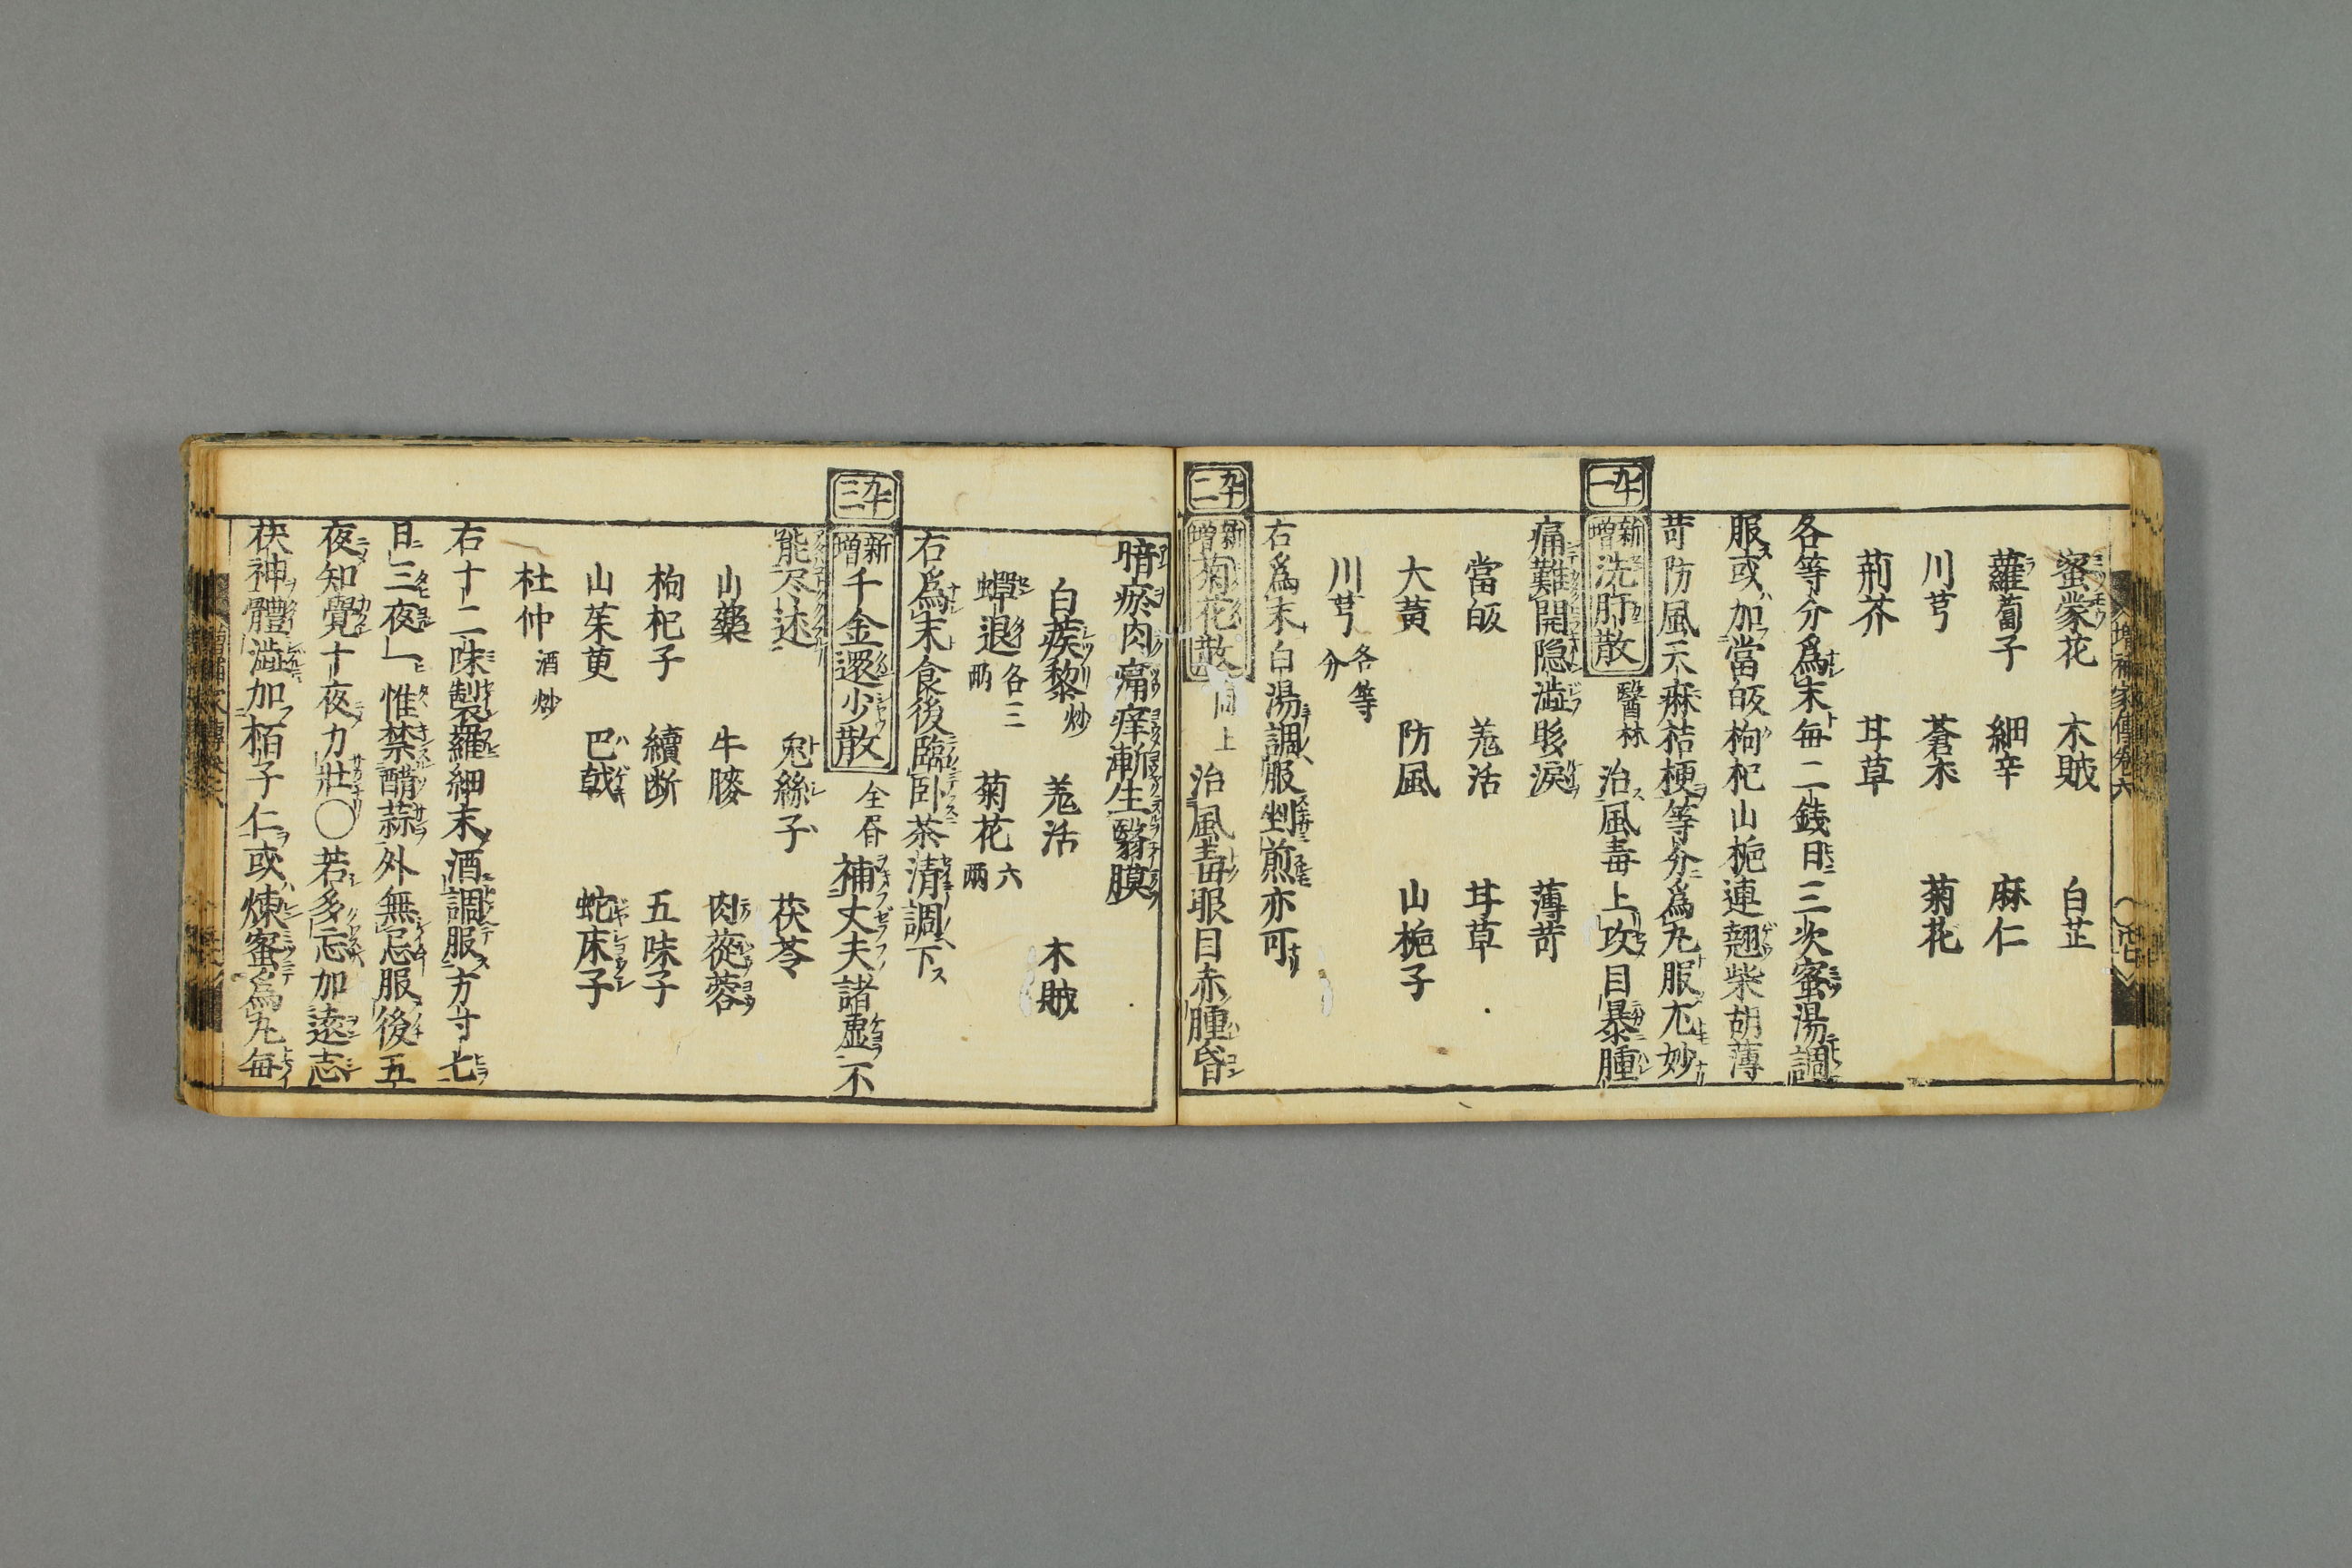 蜜蒙花　木賊　白芷
蘿蔔子　細辛　麻仁
川芎　蒼朮　菊花
荊芥　甘草
各等分爲末毎二錢日三次蜜湯調
服或加當皈枸杞山梔連翹柴胡薄
苛防風天麻桔梗等分爲丸服尤妙
九十一 新増 洗肝散 醫林 治風毒上攻目暴腫
痛難開隐澁眵涙　薄苛
當皈　羗活　甘草
大黄　防風　山梔子
川芎 各等分
右爲末白湯調服剉煎亦可
九十二 新増 菊花散 同上 治風毒眼目赤腫昏
暗瘀肉痛痒漸生翳膜
白蒺藜 炒　羗活　木賊
蟬退 各三兩　菊花 六兩
右爲末食後臨卧茶清調下
九十三 新増 千金還少散 全 補丈夫諸虚不
能尽述　兔絲子　茯苓
山藥　牛膝　肉蓯蓉
枸杞子　續断　五味子
山茱萸　巴戟　蛇床子
杜仲 酒炒
右十二味製羅細末酒調服方寸七
日三夜一惟禁醋蒜外無忌服後五
夜知覺十夜力壯〇若多忘加遠志
茯神體澁加栢子仁或煉蜜爲丸毎
増補家傳卷六